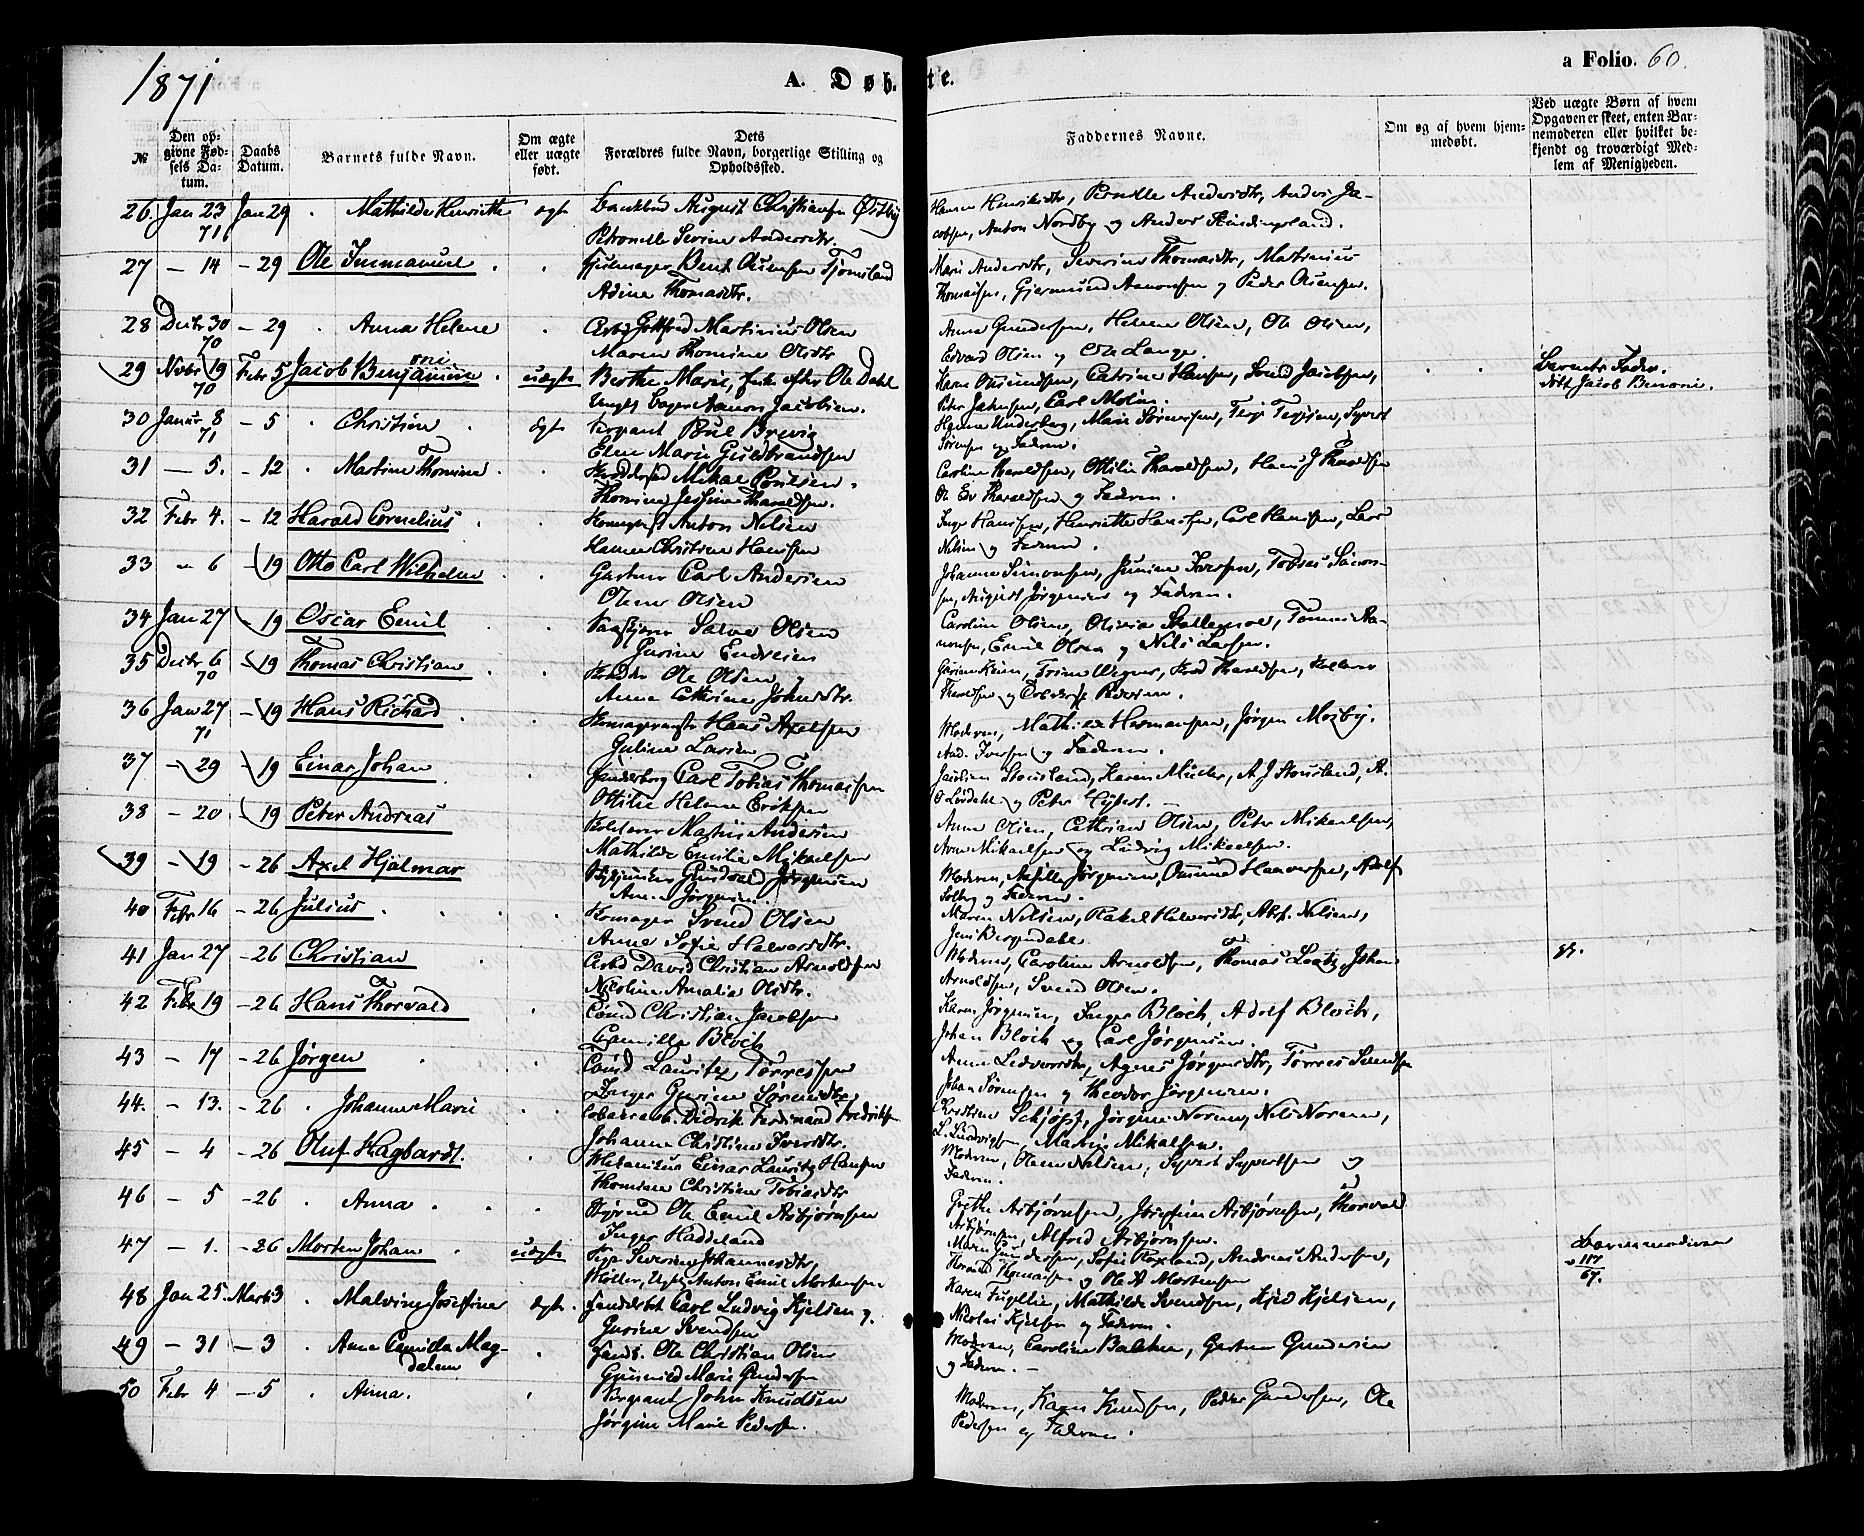 1871
A. Døbte.
a Folio. 60.
№
Den opgivne Fødsels Datum.
Daabs Datum.
Barnets fulde Navn.
Om ægte eller uægte født.
Dets Forældres fulde Navn, borgerlige Stilling og Opholdssted.
Faddernes Navne.
Om og af hvem hjemmedøbt.
Ved uægte Børn af hvem Opgaven er skeet, enten Barnemoderen eller hvilket bekjendt og troværdigt Medlem af Menigheden.
26 Jan 23 71 Jan 29 Mathilde Henriette ægte August Christiansen Østby
Petronelle Severine Andersdtr.
Hanna Henriksdtr, Pernille Andersdtr, Anders Ja-
cobsen, Anton Nordby og Anders
27 — 14 — 29 Ole Immanuel Hjulmager Bent Osmundsen Tjomsland
Adine Thomasdtr.
Marie Andersdtr, Severine Thomasdtr, Mathinius
Thomassen, Gjermund Aanonsen og Peder Osmundsen.
28 Decbr 30 70 — 29 Anna Helene Gottfred Martinius Olsen
Maren Thomine Olsdtr
Anna Gundersen, Helene Olsen, Ole Olsen,
Edvard Olsen og Ole Lange.
29 Novbr 19 70 Febr 5 Jacob Benjamine oni uægte Berthe Marie, Enke efter Ole Dahl
Ungk. Aanon Jacobsen.
Karen Osmundsen, Catrine Hansen, Svend Jacobsen,
Peter Jakobsen, Carl Molin.
Barnets Fader.
døbt Jacob Benoni.
30 Januar 8 71 — 5 Christine ægte Sergeant Poul Brevig
Elen Marie Guldbrandsen
Hanna Underberg, Marie Sørensen, Terje Terjesen, Syvert
Sørensen og Faderen.
31 — 5. — 12 Martine Thomine Mikal Poulsen.
Thomine Jessine Haraldsen.
Caroline Haraldsen, Ottilie Haraldsen, Hans J Haraldsen
Ole Ed Haraldsen og Faderen.
32 Febr 4. — 12 Harald Cornelius Anton Nilsen
Hanne Christine Hansen
Inger Hansen, Henriette Hansen, Carl Hansen, Lars
Nilsen og Faderen.
33 — 6 — 19 Otto Carl Wilhelm Gartner Carl Andersen
Olene Olsen
Johanne Simonsen, Iversen, Tobias Simon-
sen, August Jørgensen og Faderen.
34 Jan 27 — 19 Oscar Emil Salve Olsen
Gurine Endresen
Caroline Olsen, Olivia Stallemoe, Tomine Aa-
nonsen, Emil Olsen og Nils Larsen.
35 Decbr 6 70 — 19 Thomas Christian Ole Olsen
Anne Cathrine Johnsdtr.
Trine Wegner, Haraldsen,
Haraldsen og
36 Jan 27 71 — 19 Hans Richard Skomagersvend Hans Axelsen
Guline Larsen
Moderen, Mathilde Hermansen, Jørgen Mosby.
And. Iversen og Faderen.
37 — 29 — 19 Einar Johan Carl Tobias Thomassen
Ottilie Helene Eriksen
Stousland, Karen Müller, A J Stousland, A.
O Lövdahl og Peter
38 — 20 — 19 Peter Andreas Mathis Andersen
Mathilde Emilie Mikaelsen
Anne Olsen, Cathrine Olsen, Peter Mikaelsen,
Mikaelsen og Ludvig Mikaelsen.
39 — 19 — 26 Axel Hjalmar Jørgensen
Anne Jørgensen
Moderen, Jørgensen, Osmund Haaversen, Adolf
Solberg og Faderen.
40 Febr 16 — 26 Julius Skomager Svend Olsen
Anne Sofie Halvorsdtr.
Maren Nilsen, Rakel Halvorsdtr, Abr. Nilsen,
Jens Bergendahl
41 Jan 27 — 26 Christian Arbd David Christian Arnoldsen
Nicoline Amalie Olsdtr.
Moderen, Caroline Arnoldsen, Thomas Johan
Arnoldsen, Svend Olsen.
42 Febr 19 — 26 Hans Thorvald Christian Jacobsen
Camilla Bloch
Karen Jørgensen, Inger Bloch, Adolf Bloch,
Johan Bloch og Carl Jørgensen.
43 — 17 — 26 Jørgen Lauritz Torressen
Inger Gurine Sørensdtr
Anne Ledvorsdtr, Agnes Jørgensdtr, Torres Svendsen
Johan Sørensen og Theodor Jørgensen.
44. — 13. — 26 Johanne Marie Didrik Ferdinand Fredriksen
Johanne Christine Iversdtr.
Christine Schjøtz, Jørgine Noren, Nils Noren,
L. Ludvigsen, Martin Mikalsen.
45 — 4 — 26 Oluf Hagbardt. Mekanikus Einar Lauritz Hansen
Thomine Christine Tobiasdtr
Moderen, Olene Nilsen, Syvert Syvertsen og
Faderen.
46 — 5 — 26 Anna Styrmd Ole Emil Asbjørnsen
Inger Haddeland
Grethe Asbjørnsen, Josephine Asbjørnsen, Thorvald
Asbjørnsen, Alfred Asbjørnsen.
47 — 1. — 26 Morten Johan uægte Pige Severine Johannesdtr,
Ungk Anton Emil Mortensen
Maren Gundersen, Sofie Roxland, Andreas Andersen,
Thomassen og Ole A Mortensen
Barnemoderen
117
67.
48 Jan 25. Marts 3 Malvine Josefine ægte. Carl Ludvig Kjelsen og
Gurine Svendsen
Karen Fugellie, Mathilde Svendsen, Kjeld Kjelsen,
Nicolai Kjelsen og Faderen.
49 — 31 — 3 Anne Camilla Mag-
dalene
Ole Christian Olsen
Gunnild Marie Gundersen
Moderen, Caroline Balchen, Gundersen
og Faderen.
50 Febr 4 — 5 Anna. Sergeant John Knudsen
Jørgine Marie Pedersen.
Moderen, Karen Knudsen, Peder Gundersen, Ole
Pedersen og Faderen.